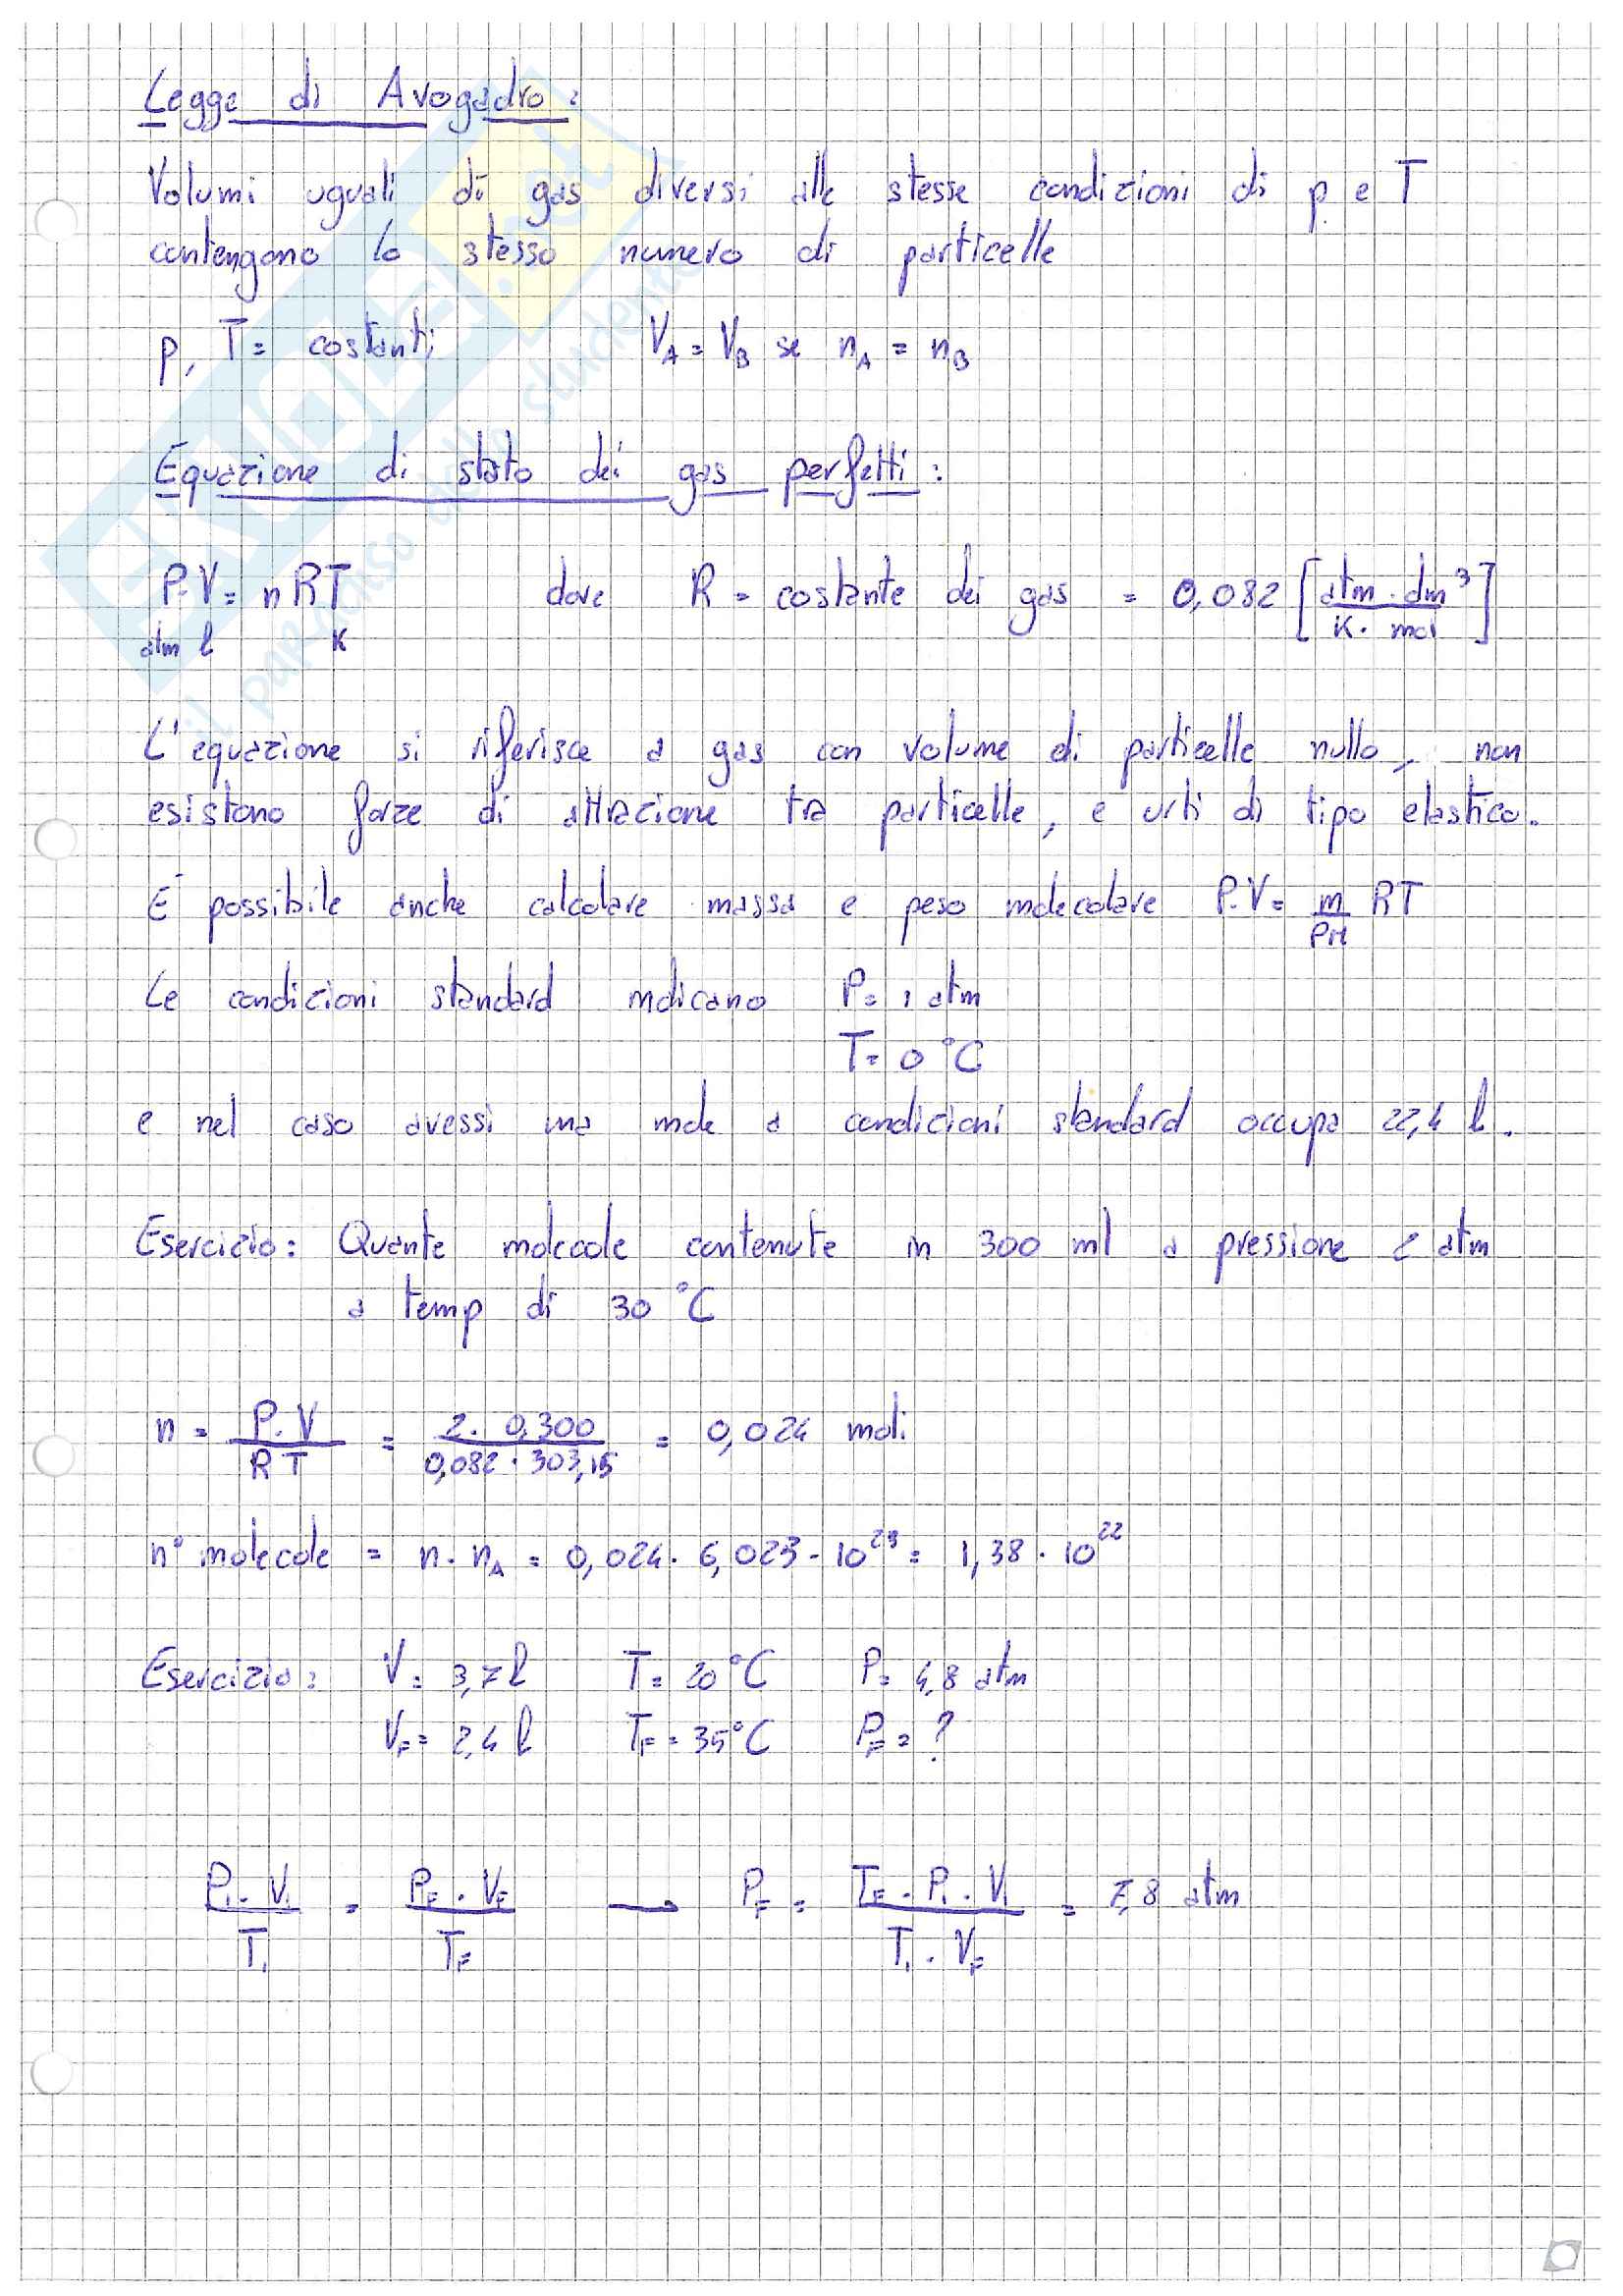 Legge di Avogadro:
Volumi uguali di gas diversi alle stesse condizioni di p e T
contengono lo stesso numero di particelle
p, T = costanti V_A = V_B se n_A = n_B
Equazione di stato dei gas perfetti:
P·V = nRT dove R = costante dei gas = 0,082 [atm · dm³ / K · mol]
atm l K
L'equazione si riferisce a gas con volume di particelle nullo, non
esistono forze di attrazione tra particelle, e urti di tipo elastico.
È possibile anche calcolare massa e peso molecolare P·V = m/PM RT
Le condizioni standard indicano P = 1 atm
T = 0 °C
e nel caso avessi una mole a condizioni standard occupa 22,4 l.
Esercizio: Quante molecole contenute in 300 ml a pressione 2 atm
a temp di 30 °C
n = P·V / RT = 2 · 0,300 / 0,082 · 303,15 = 0,024 moli
n° molecole = n · n_A = 0,024 · 6,023 · 10²³ = 1,38 · 10²²
Esercizio: V = 3,7 l T = 20 °C P = 4,8 atm
V_F = 2,4 l T_F = 35 °C P_F = ?
P_i · V_i / T_i = P_F · V_F / T_F → P_F = T_F · P_i · V_i / T_i · V_F = 7,8 atm